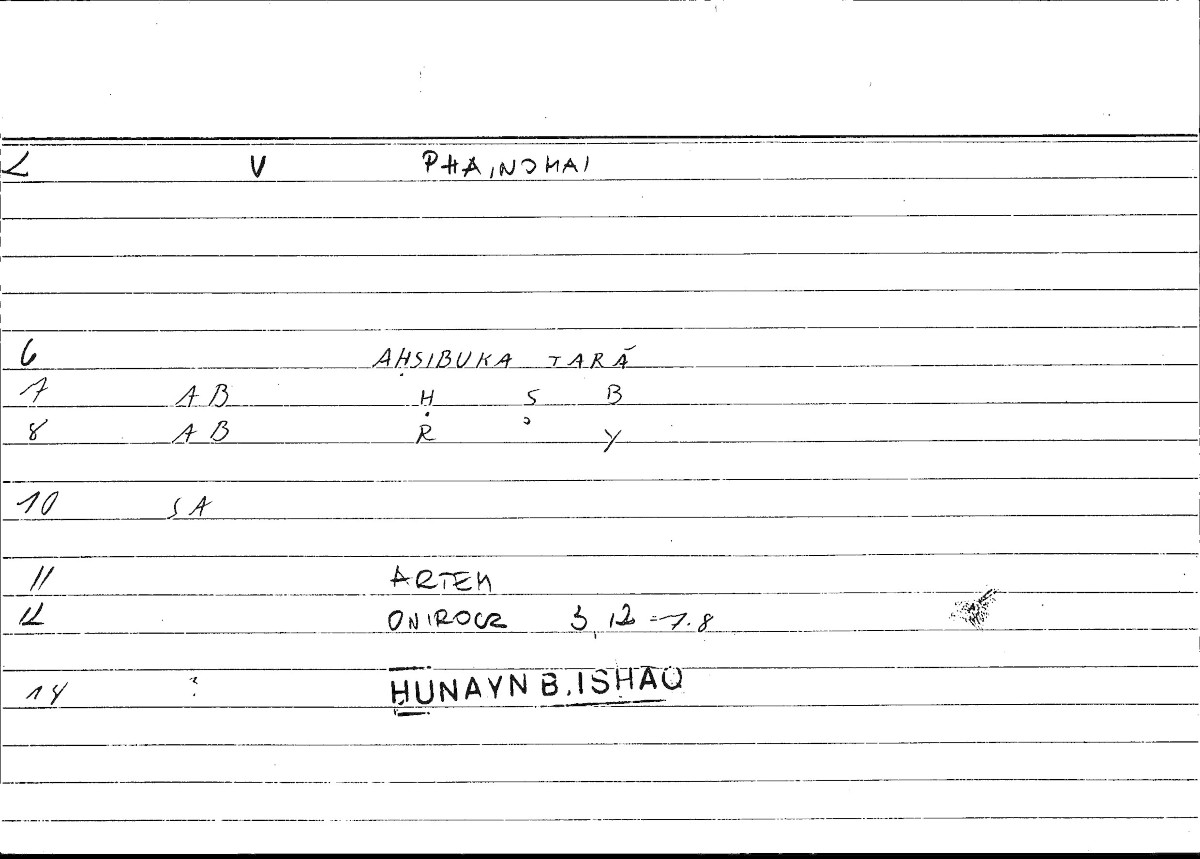 L V PHAINOMAI
6 AḤSIBUKA TARĀ
7 AB Ḥ S B
8 AB R Y
10 SA
11 ARTEM
12 ONIROCR 3,12 = 7.8
14 ? HUNAYN B. ISHAQ